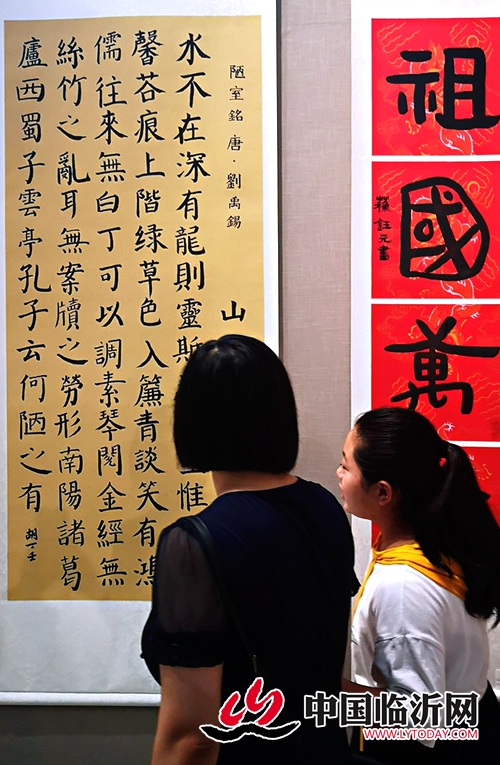 祖國萬
蘇鈺元書
陋室銘 唐·劉禹錫
山
水不在深有龍則靈斯
惟
馨苔痕上階绿草色入簾青談笑有鴻
儒往來無白丁可以調素琴閱金經無
絲竹之亂耳無案牘之勞形南陽諸葛
廬西蜀子雲亭孔子云何陋之有
中国临沂网
WWW.LYTODAY.COM